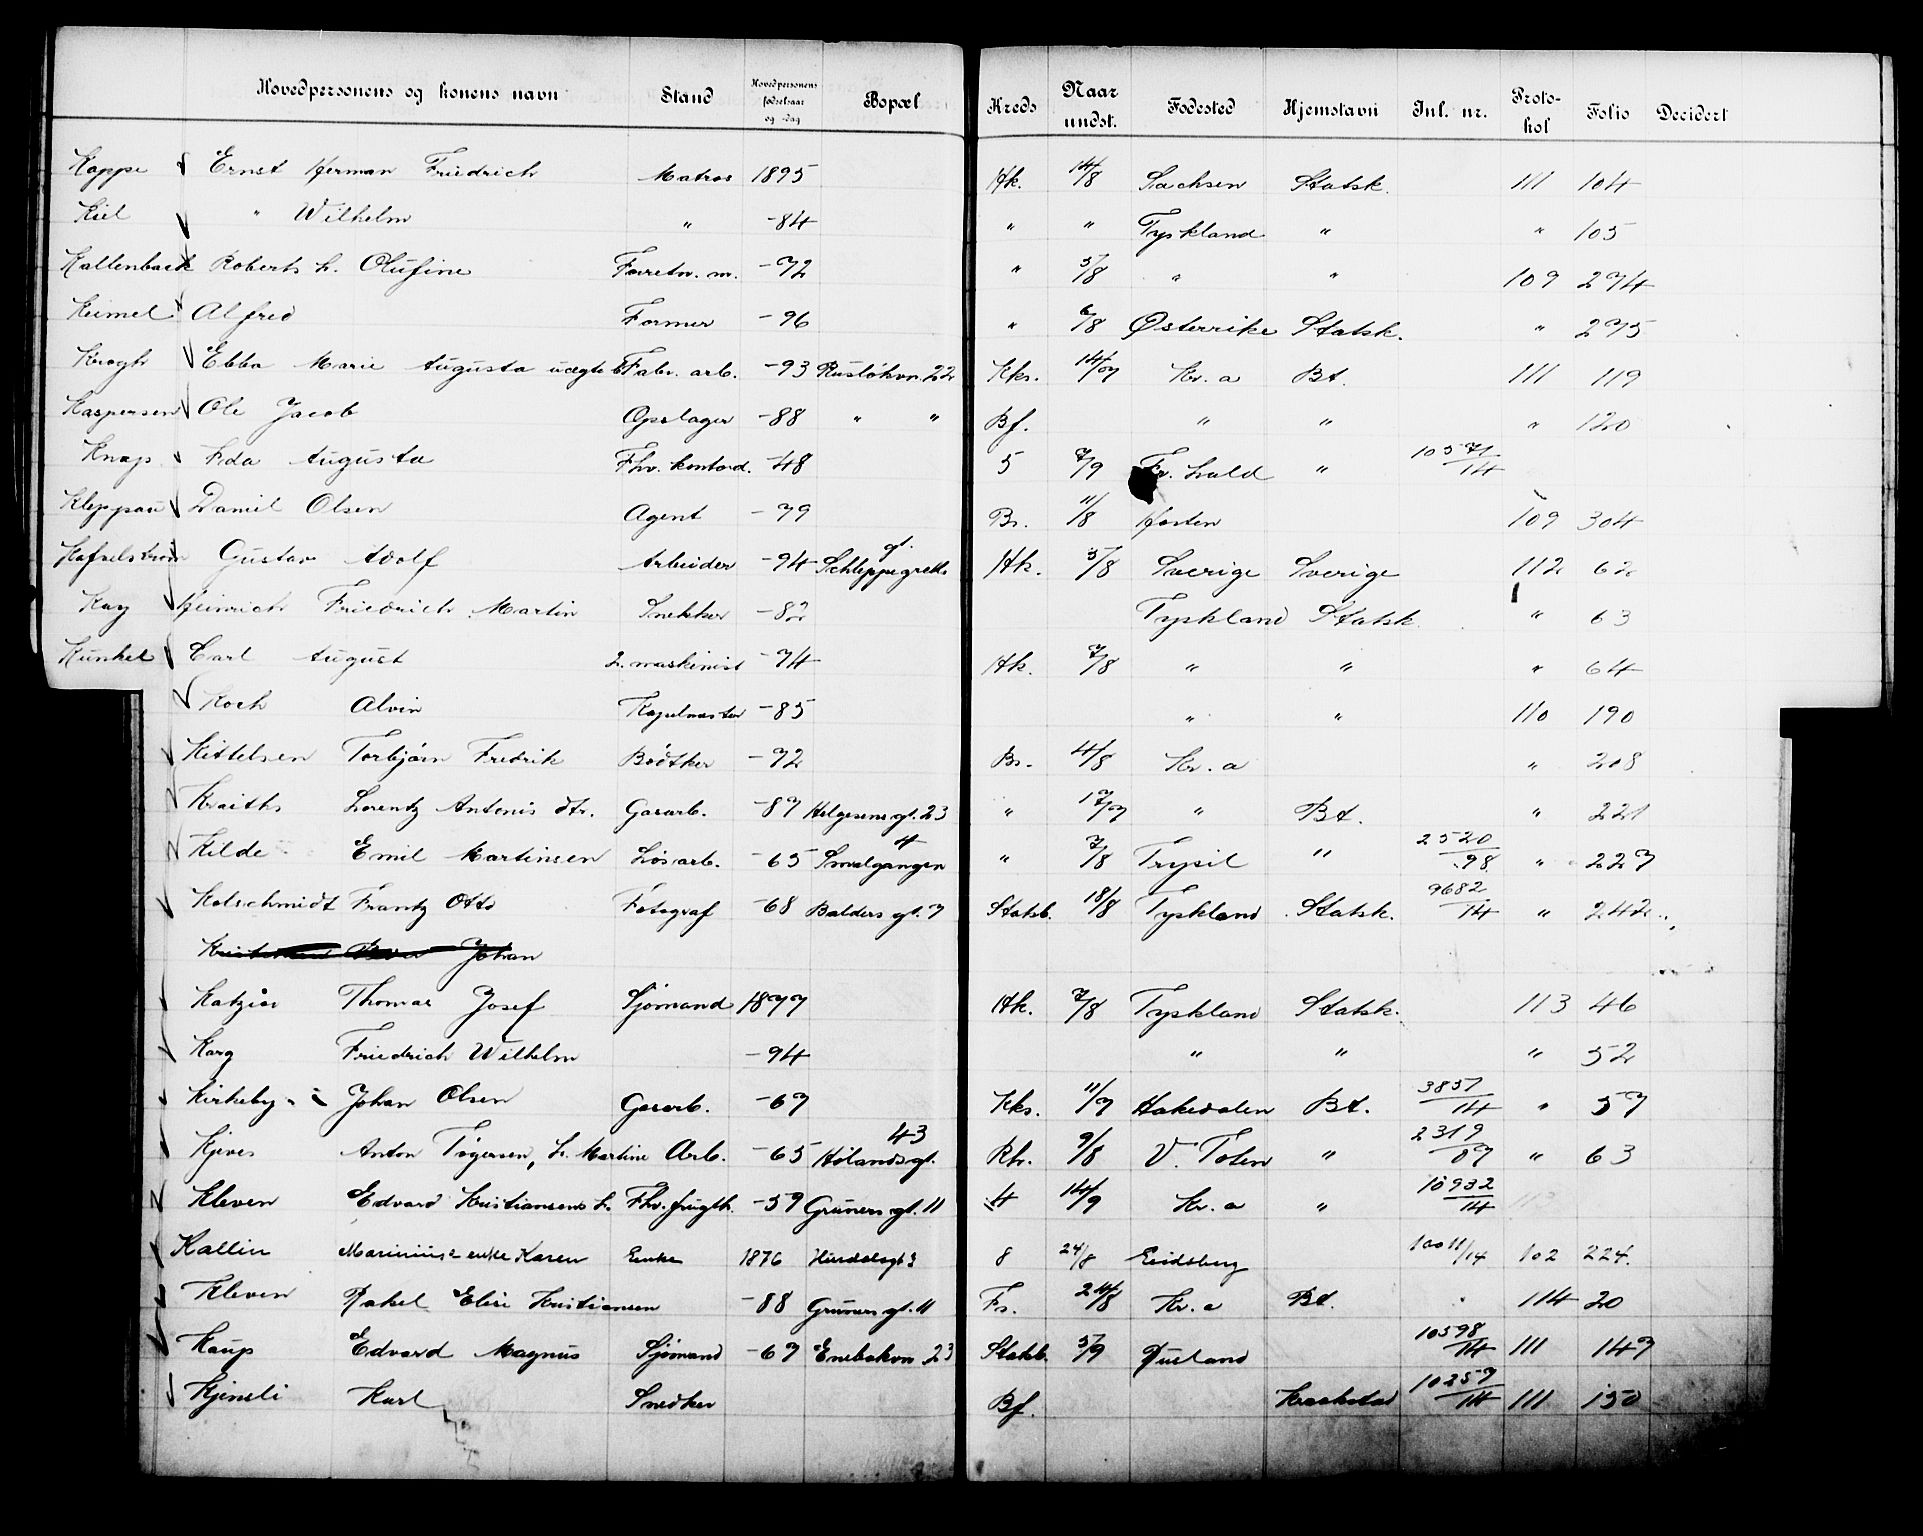 Hovedpersonens og konens navn Stand Hovedpersonens fødselsaar og -dag Bopæl Kreds Naar undst. Fødested Hjemstavn Inl. nr. Protokol Folio Decidert
Koppe Ernst Herman Friedrich Matros 1895 Hk. 14/8 Sachsen Statsk. 111 104
Kiel " Wilhelm " -84 " " Tyskland " " 105
Kallenback Roberts h. Olufine Forretn. m. -72 " 5/8 " " 109 274
Keimel Alfred Former -96 " 6/8 Østerrike Statsk. " 275
Krogh Ebba Marie Augusta uægte b Fabr. arb. -93 Rusløkvn. 22 Kks. 14/7 Kr. a Bt. 111 119
Kaspersen Ole Jacob Opslager -88 " " Bf. " " " 120
Knap Ida Augusta Fhv. kontord. -48 5 7/9 Fr. hald " 10571/14
Kleppan Daniel Olsen Agent -79 Br. 11/8 Hosten 109 304
Gustav Adolf Arbeider -94 Schleppegrells gt. Hk. 5/8 Sverige Sverige 112 62
Kay Heinrich Friedrich Martin Snekker -82 Tyskland Statsk. " 63
Kunkel Carl August 2. maskinist -74 Hk. 7/8 " " " 64
Koch Alvin Kapelmester -85 " " 110 190
Kittelsen Torbjørn Fredrik Bødker -72 Br. 4/8 Kr. a " 208
Lorentz Antonis dtr. Gasarb. -87 Helgesens gt. 23 " 17/7 " Bt. " 221
Kilde Emil Martinsen Løsarb. -65 Smalgangen 4 " 7/8 Trysil " 2520/98 " 227
Kolschmidt Frantz Otto Fotograf -68 Balders gt. 7 Statsb. 18/8 Tyskland Statsk. 9682/14 " 242
Johan
Thomas Josef Sjømand 1877 Hk. 7/8 Tyskland Statsk. 113 46
Karg Friedrich Wilhelm -94 " " " 52
Kirkeby Johan Olsen Gasarb. -67 Kks. 11/7 Hakedalen Bt. 3857/14 " 57
Kjeves Anton Tøgersen, h. Martine Arb. -65 Hølandsgt. 43 Rh. 9/8 V. Toten " 2319/07 " 63
Kleven Edvard Kristiansens h. Fhv. frugth. -59 Gruners gt. 11 4 14/9 Kr. a " 10932/14 113
Kallin Marinius enke Karen Enke 1876 Hurdalsgt 3 8 24/8 Eidsberg 10011/14 102 224.
Kleven Rakel Elise Kristiansen -88 Gruners gt. 11 Fs. 24/8 Kr. a Bt. 114 20
Kaup Edvard Magnus Sjømand -67 Enebakvn. 23 Statsb. 5/9 Rusland 10598/14 111 147
Kjensli Karl Snedker Bf. Kraakstad 10257/14 111 150